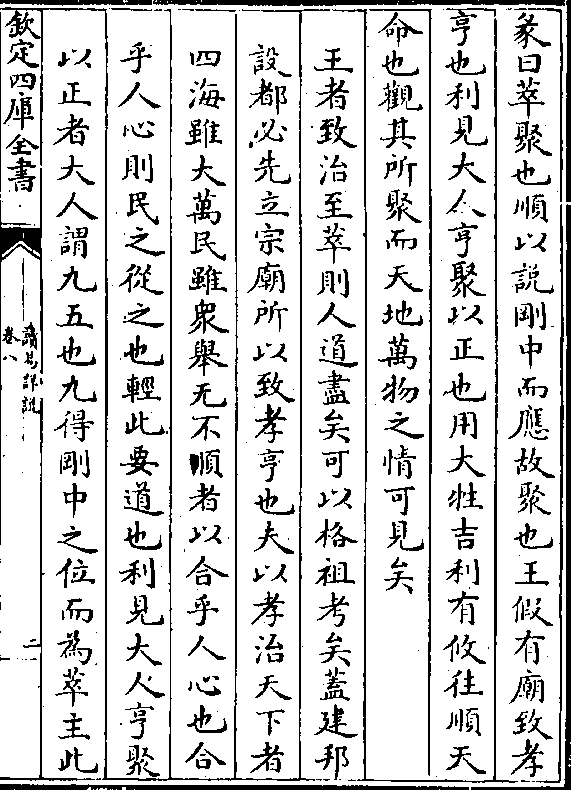 彖曰萃聚也順以説剛中而應故聚也王假有廟致孝
亨也利見大人亨聚以正也用大牲吉利有攸往順天
命也觀其所聚而天地萬物之情可見矣
王者致治至萃則人道盡矣可以格祖考矣蓋建邦
設都必先立宗廟所以致孝亨也夫以孝治天下者
四海雖大萬民雖衆舉无不順者以合乎人心也合
乎人心則民之從之也輕此要道也利見大人亨聚
以正者大人謂九五也九得剛中之位而為萃主此
欽定四庫全書
讀易詳説
卷八
二